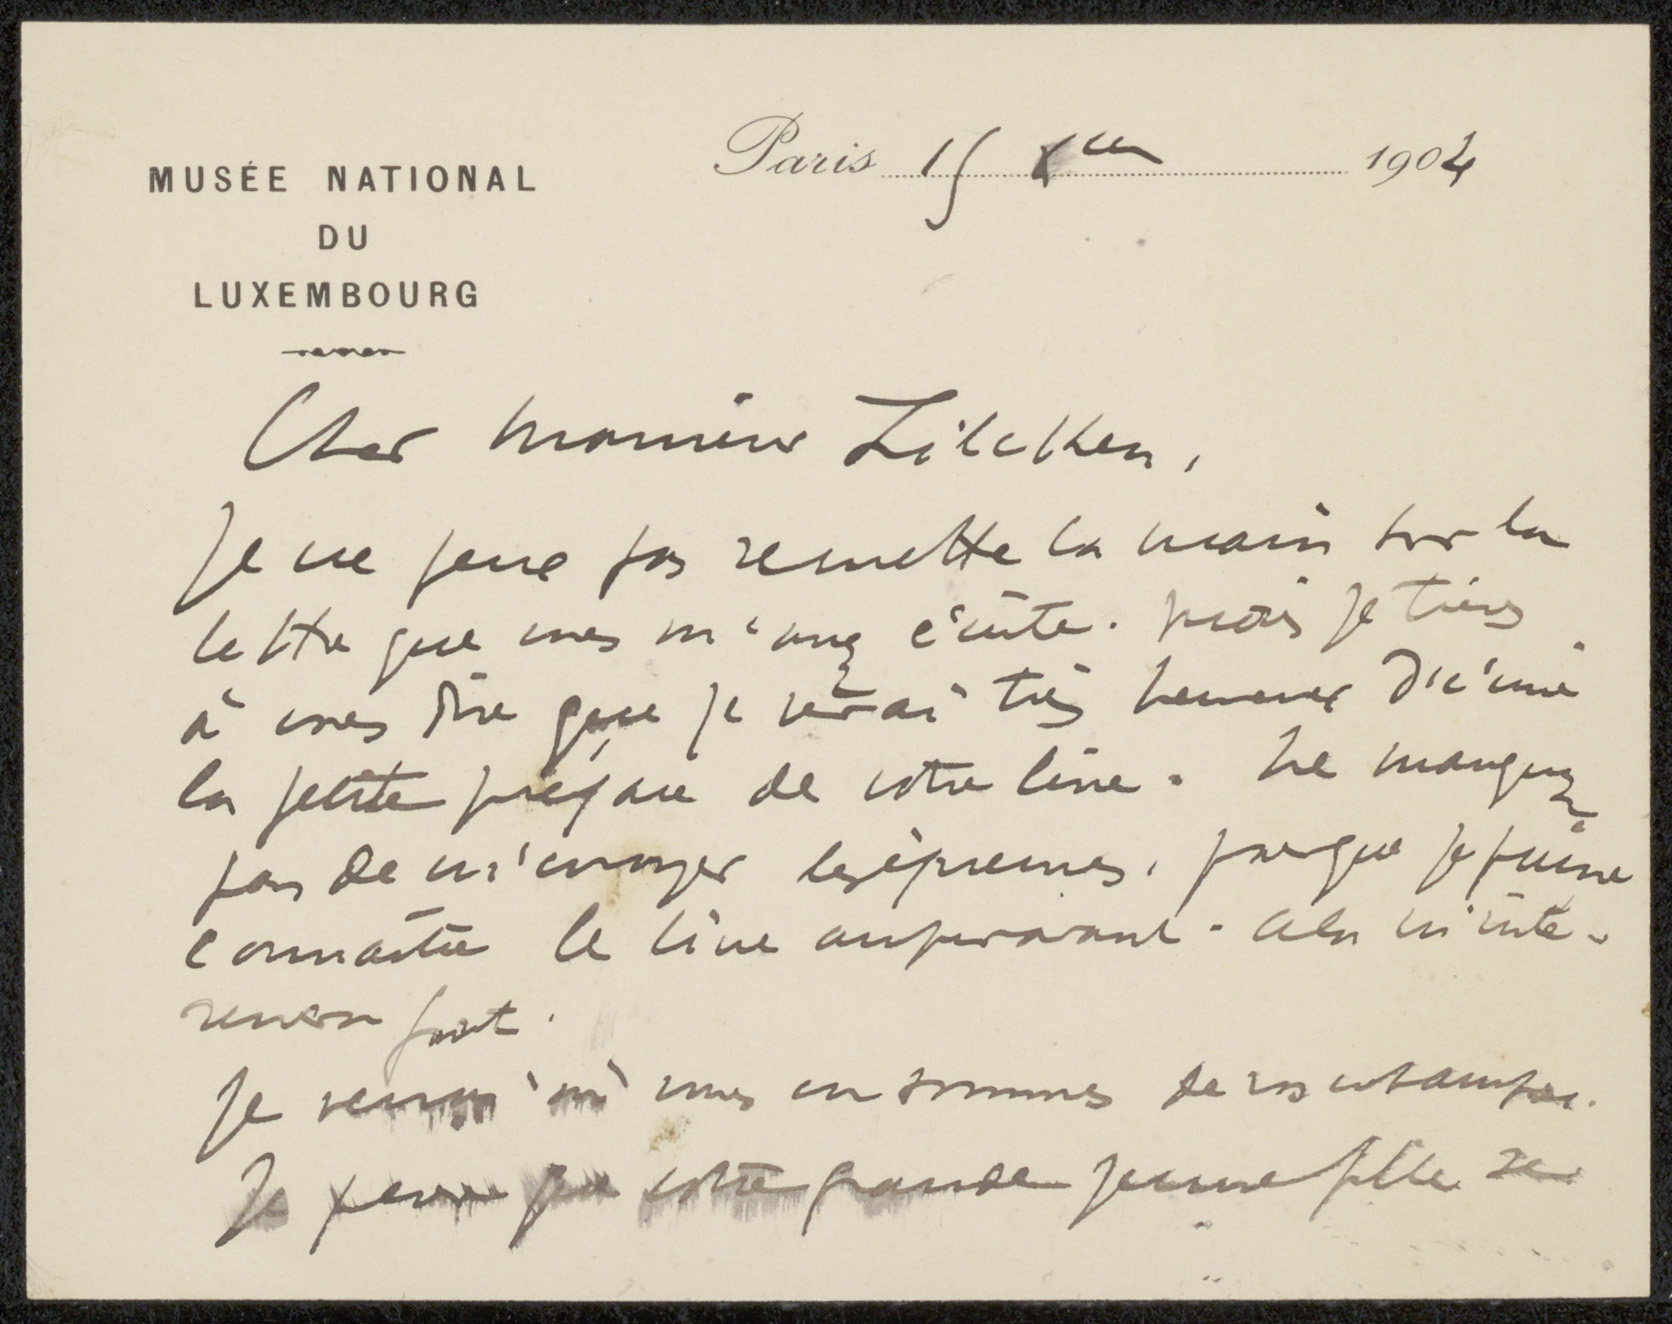 MUSÉE NATIONAL
DU
LUXEMBOURG
Paris 15 Xbre 1904
Cher Monsieur Zilcken,
Je ne peux pas remettre la main sur la
lettre que vous m'avez écrite. Mais je tiens
à vous dire que je serai très heureux d'écrire
la petite préface de votre livre. Ne manquez
pas de m'envoyer les épreuves, pour que je puisse
connaître le livre auparavant. Cela m'inté-
ressera fort.
Je vous en sommes de vos estampes.
Je pense que votre grande jeune fille se